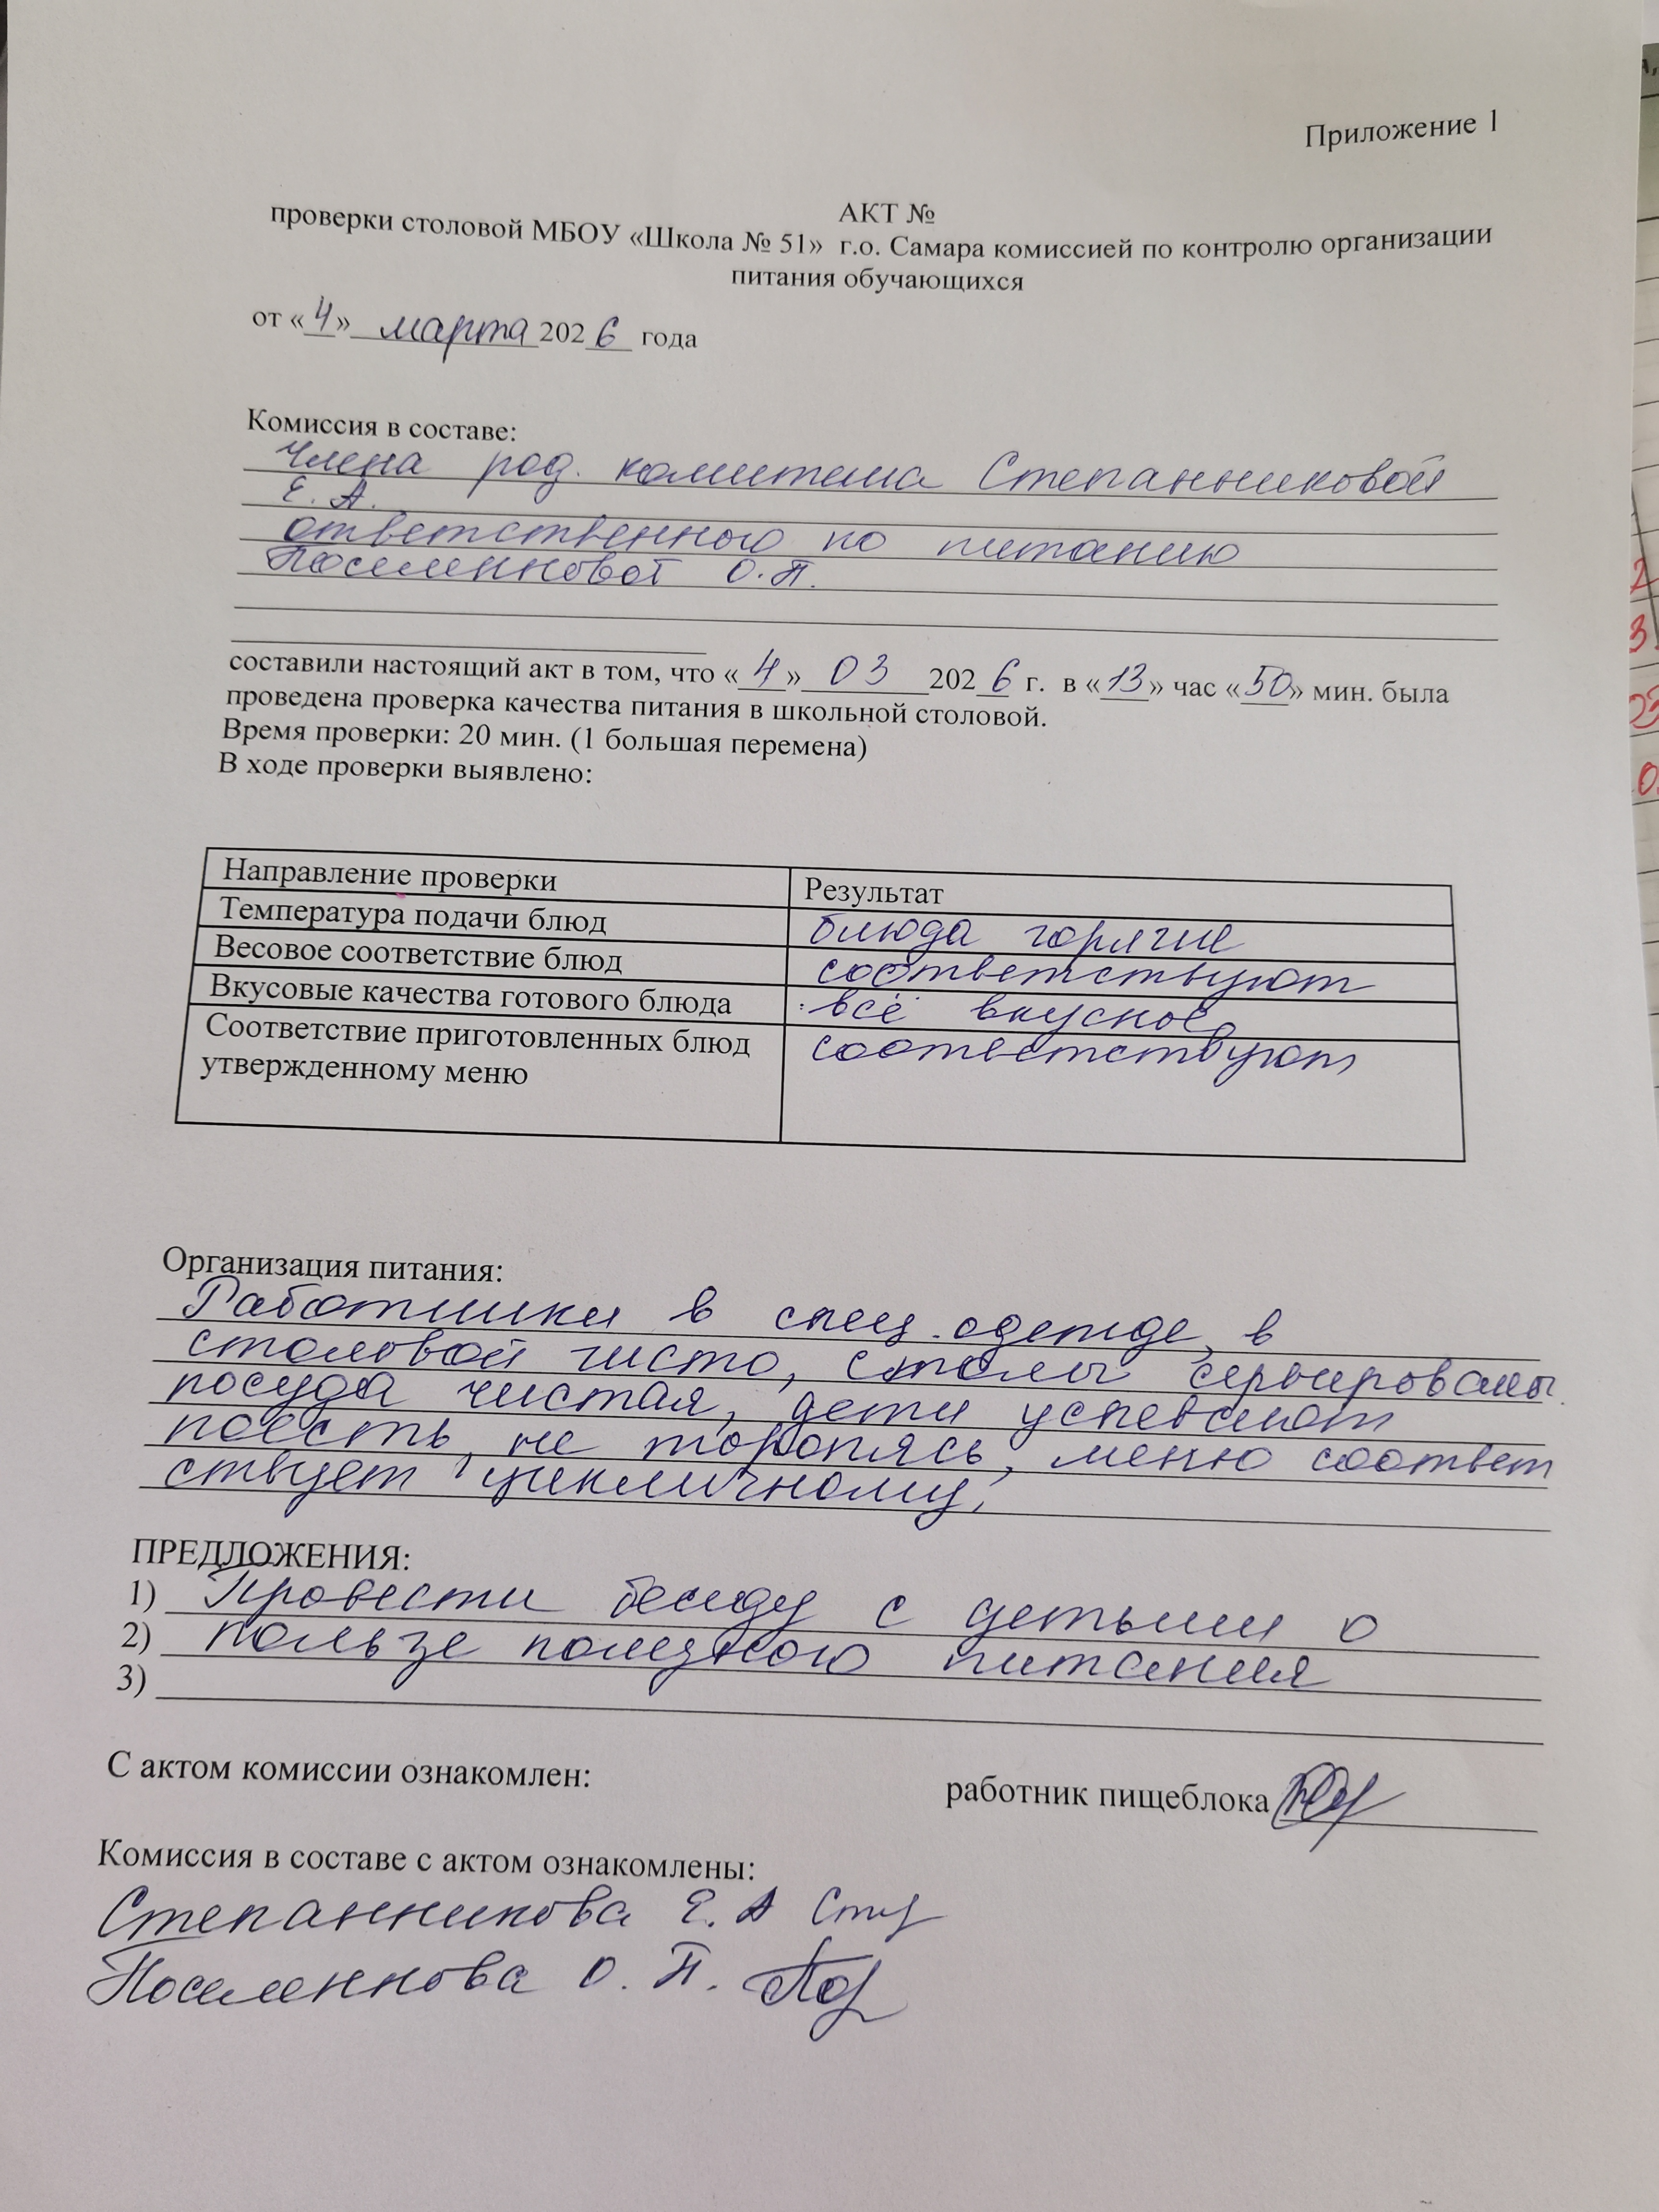 Приложение 1
АКТ №
проверки столовой МБОУ «Школа № 51» г.о. Самара комиссией по контролю организации
питания обучающихся
от «4» марта 2026 года
Комиссия в составе:
члена род. комитета Степанниковой
Е. А.
ответственного по питанию
Поселенновой О.П.
составили настоящий акт в том, что «4» 03 2026 г. в «13» час «50» мин. была
проведена проверка качества питания в школьной столовой.
Время проверки: 20 мин. (1 большая перемена)
В ходе проверки выявлено:
Направление проверки Результат
Температура подачи блюд блюда горячие
Весовое соответствие блюд соответствуют
Вкусовые качества готового блюда всё вкусное
Соответствие приготовленных блюд соответствуют
утвержденному меню
Организация питания:
Работники в спец. одежде, в
столовой чисто, столы сервированы
посуда чистая, дети успевают
поесть, не торопясь, меню соответ
ствует цикличному.
ПРЕДЛОЖЕНИЯ:
1) Провести беседу с детьми о
2) пользе полезного питания
3)
С актом комиссии ознакомлен:
работник пищеблока
Комиссия в составе с актом ознакомлены:
Степанникова Е. А
Поселеннова О. П.